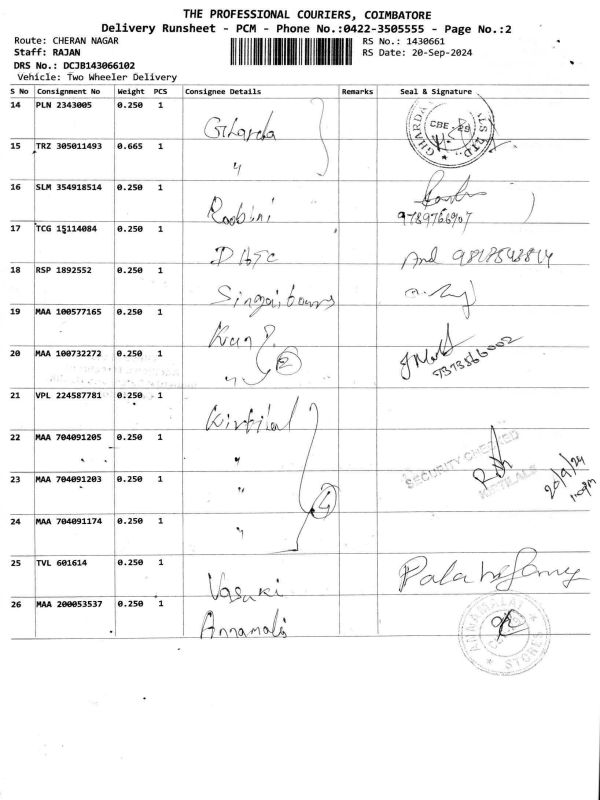 THE PROFESSIONAL COURIERS, COIMBATORE
Delivery Runsheet - PCM - Phone No.:0422-3505555 - Page No.:2
Route: CHERAN NAGAR
RS No.: 1430661
Staff: RAJAN
RS Date: 20-Sep-2024
DRS No.: DCJB143066102
Vehicle: Two Wheeler Delivery
S No Consignment No Weight PCS Consignee Details Remarks Seal & Signature
14 PLN 2343005 0.250 1 Gharda
CBE - 29
15 TRZ 305011493 0.665 1 "
16 SLM 354918514 0.250 1 Roobini
9789766907
17 TCG 15114084 0.250 1
18 RSP 1892552 0.250 1
19 MAA 100577165 0.250 1
20 MAA 100732272 0.250 1 " 2
21 VPL 224587781 0.250 1 Kirtilal
22 MAA 704091205 0.250 1 "
SECURITY CHECKED
23 MAA 704091203 0.250 1 " 4
20/9/24
24 MAA 704091174 0.250 1 "
25 TVL 601614 0.250 1 Vasaki
26 MAA 200053537 0.250 1 Annamalai
ANNAMALAI STORES